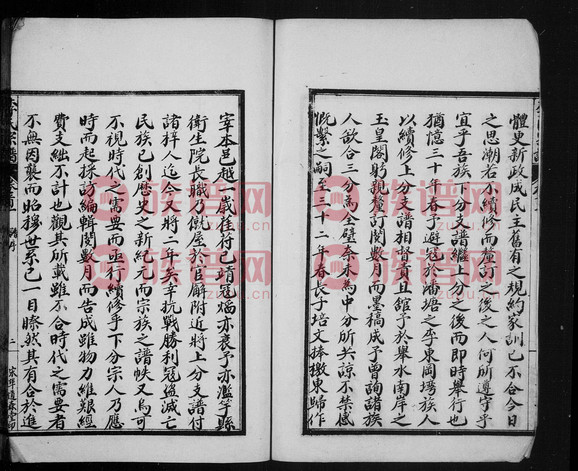 體史新政成民主舊有之規約家訓已不合今日
之思潮若不續修而釐訂之後之人何所遵守乎
宜乎吾族二分支譜繼上分之後而即時舉行也
猶憶三十年春予避寇於潘塘之李東岡塆族人
以續修上分支譜相督責且館予於舉水南岸之
玉皇閣躬親釐訂閱數月而墨稿成予曾詢諸族
人欲合三分為全璧奈未為中分所共諒不禁感
慨繫之嗣至三十二年春長子培文捧檄東歸作
宰本邑越一歲萑苻已靖寇燄亦衰予亦濫竽縣
衛生院長職乃僦屋於官廨附近將上分支譜付
諸梓人迄今又將二年矣辛抗戰勝利寇盜滅亡
民族已創歷史之新紀元而宗族之譜帙又烏可
不視時代之需要而亟行續修乎下分宗人乃應
時而起採訪編輯閱數月而告成雖物力維艱經
費支絀不計也觀其所載雖不合時代之需要者
不無因襲而昭穆世系已一目瞭然其有合於進
二
族谱网
zupu.cn